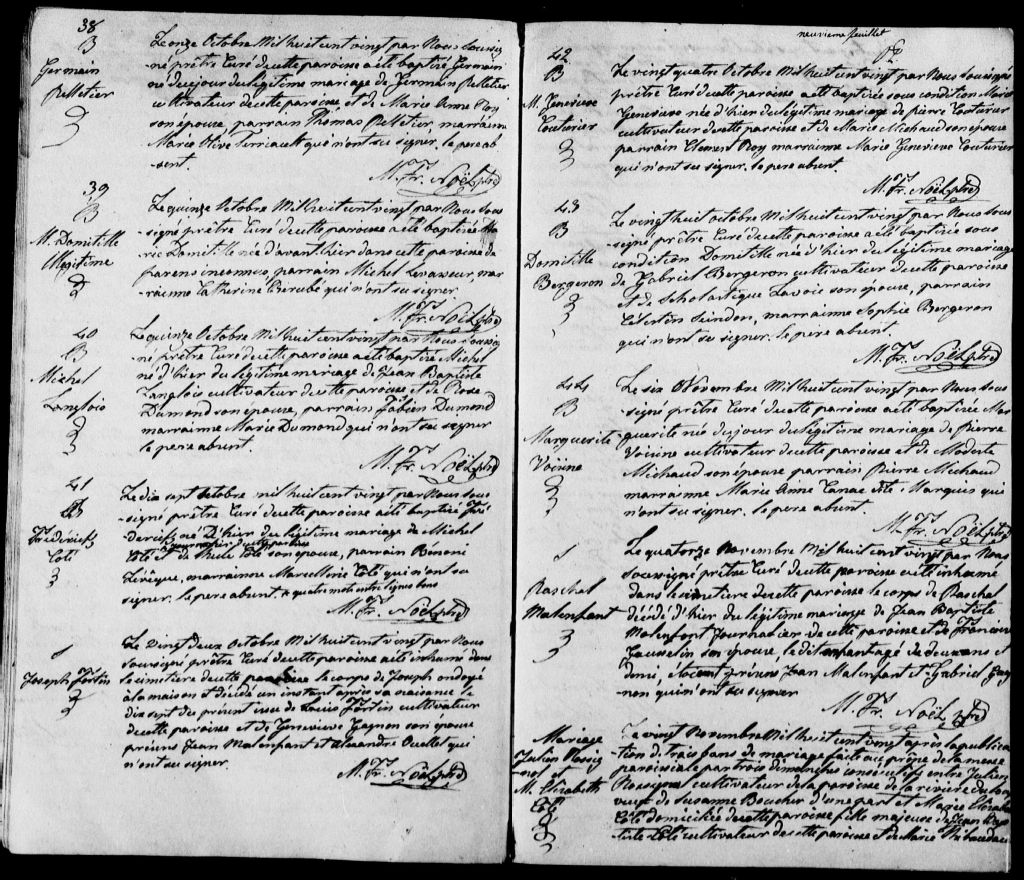 38
B
Germain
Pelletier
Le onze Octobre Mil huit cent vingt par Nous soussig
né prêtre Curé de cette paroisse a été baptisé Germain
né du jour du légitime mariage de Germain Pelletier
cultivateur de cette paroisse et de Marie Anne Roy
son épouse, parrain Thomas Pelletier, marraine
Marie Olive Terriault qui n'ont su signer, le pere ab
-sent.
M. Fr. Noël ptre
39
B
M. Domitille
Illegitime
Le quinze Octobre Mil huit cent vingt par Nous sous
signé prêtre Curé de cette paroisse a été baptisée Ma
rie Domitille née d'avant hier dans cette paroisse de
parens inconnus, parrain Michel Levasseur, mar
raine Catherine Berubé qui n'ont su signer.
M. Fr. Noël ptre
40
B
Michel
Langlois
Le quinze Octobre Mil huit cent vingt par Nous soussig
né prêtre Curé de cette paroisse a été baptisé Michel
né d'hier du légitime mariage de Jean Baptiste
Langlois cultivateur de cette paroisse et de Rose
Dumond son épouse, parrain Fabien Dumond
marrainne Marie Dumond qui n'ont su signer
le pere absent.
M. Fr. Noël ptre
41
B
Fréderick
Coté
Le dix sept Octobre mil huit cent vingt par Nous sous
signé prêtre Curé de cette paroisse a été baptisé Fré
derick né D'hier du légitime mariage de Michel
Coté et de Coté son épouse, parrain Benoni
Lévêque, marrainne Marcelline Coté qui n'ont su
signer, le pere absent, quatre mots entre lignes bons
M. Fr. Noël ptre
S
Joseph Fortin
Le Vingt deux Octobre Mil huit cent vingt par Nous
soussigné prêtre Curé de cette paroisse a été inhumé dans
le cimetière de cette paroisse le corps de Joseph ondoyé
à la maison et décédé un instant après sa naissance le
dix sept du présent issu de Louis Fortin cultivateur
de cette paroisse et de Genevieve Gagnon son épouse
présens Jean Malenfant et Alexandre Ouellet qui
n'ont su signer.
M. Fr. Noël ptre
neuvieme feuillet
42
B
M. Genevieve
Couturier
Le vingt quatre Octobre Mil huit cent vingt par Nous soussigné
prêtre Curé de cette paroisse a été baptisée sous condition Marie
Genevieve née d'hier du légitime mariage de pierre Couturier
cultivateur de cette paroisse et de Marie Michaud son épouse
parrain Clement Roy marrainne Marie Genevieve Couturier
qui n'ont su signer, le pere absent.
M. Fr. Noël ptre
43
B
Domitille
Bergeron
Le vingt huit octobre Mil huit cent vingt par Nous sous
-signé prêtre Curé de cette paroisse a été baptisée sous
condition Domitille née d'hier du légitime mariage
de Gabriel Bergeron cultivateur de cette paroisse
et de Scholastique Lavoie son épouse, parrain
Célestin marrainne Sophie Bergeron
qui n'ont su signer, le pere absent.
M. Fr. Noël ptre
44
B
Marguerite
Voisine
Le six Novembre Mil huit cent vingt par Nous sous
-signé prêtre Curé de cette paroisse a été baptisée Mar
guerite née du jour du légitime mariage de Pierre
Voisine cultivateur de cette paroisse et de Modeste
Michaud son épouse parrain Pierre Michaud
marrainne Marie Anne Canac dite Marquis qui
n'ont su signer, le pere absent.
M. Fr. Noël ptre
S
Raschel
Malenfant
Le quatorze Novembre Mil huit cent vingt par Nous
soussigné prêtre Curé de cette paroisse a été inhumé
dans le cimetière de cette paroisse le corps de Raschel
décédé d'hier du légitime mariage de Jean Baptiste
Malenfant Journalier de cette paroisse et de
son épouse, le dit enfant agé de deux ans et
demi, présens Jean Malenfant et Gabriel Gag
non qui n'ont su signer
M. Fr. Noël ptre
Mariage
Julien Rossig
nol et
M. Elizabeth
Coté
Le vingt Novembre Mil huit cent vingt après la publica
-tion de trois bans de mariage faite au prône de la messe
paroissiale par trois dimanches consécutifs entre Julien
Rossignol cultivateur de la paroisse de la rivière
veuf de Susanne Boucher d'une part et Marie Elizabeth
Coté domiciliée de cette paroisse fille majeure de Jean Bap
tiste Coté cultivateur de cette paroisse et de Marie Thibaudeau